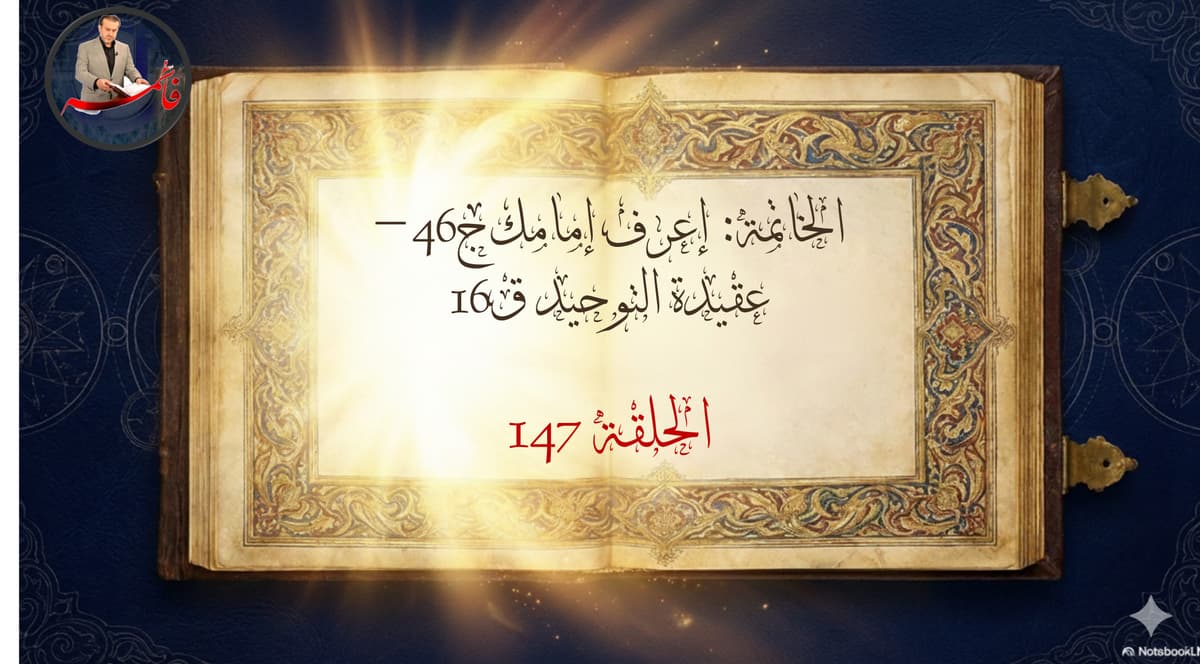 فاطمة
الخاتمة: إعرف إمامك ج46 –
عقيدة التوحيد ق16
الحلقة 147
NotsbookLM